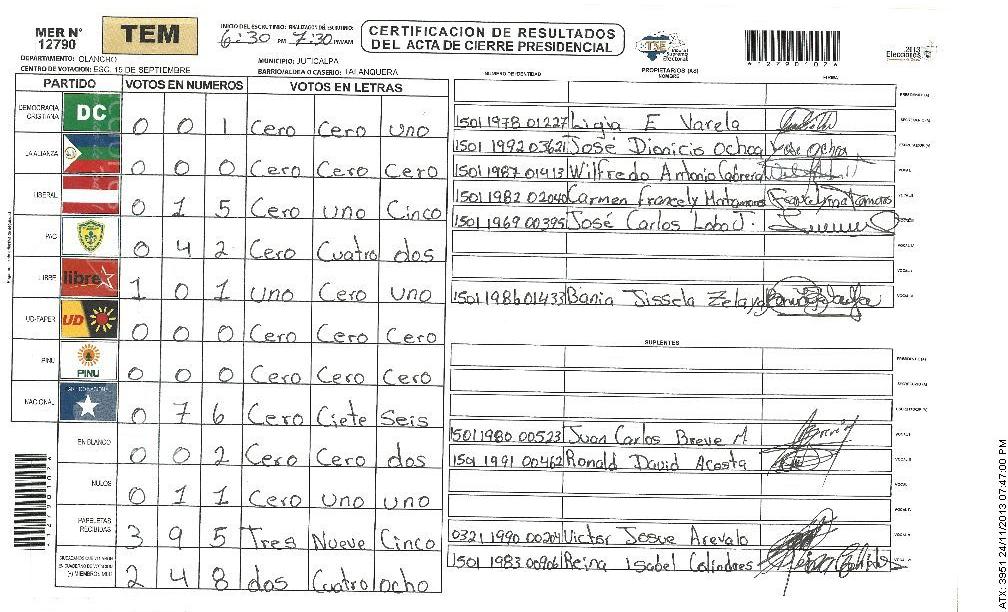 MER N° 12790
TEM
INICIO DEL ESCRUTINIO: FINALIZACIÓN DEL ESCRUTINIO:
6:30 PM 7:30 PM/AM
CERTIFICACION DE RESULTADOS
DEL ACTA DE CIERRE PRESIDENCIAL
TSE Tribunal Supremo Electoral
2013
Elecciones
DEPARTAMENTO: OLANCHO
MUNICIPIO: JUTICALPA
CENTRO DE VOTACION: ESC. 15 DE SEPTIEMBRE
BARRIO/ALDEA O CASERIO: TALANQUERA
PARTIDO VOTOS EN NUMEROS VOTOS EN LETRAS
NUMERO DE IDENTIDAD
PROPIETARIOS (AS)
NOMBRE
FIRMA
DEMOCRACIA CRISTIANA DC 0 0 1 Cero Cero uno
LA ALIANZA 0 0 0 Cero Cero Cero
LIBERAL 0 1 5 Cero uno Cinco
PAC 0 4 2 Cero Cuatro dos
LIBRE libre 1 0 1 uno Cero uno
UD-FAPER UD 0 0 0 Cero Cero Cero
PINU PINU 0 0 0 Cero Cero Cero
NACIONAL 0 7 6 Cero Ciete seis
EN BLANCO 0 0 2 Cero Cero dos
NULOS 0 1 1 Cero uno uno
PAPELETAS RECIBIDAS 3 9 5 Tres Nueve Cinco
2 4 8 dos Cuatro ocho
1501 1978 01227 Ligia E Varela
1501 1992 03621 José Dionicio Ochoa Jose Ochoa
1501 1987 01413 Wilfredo Antonio Cabrera
1501 1982 02040 Carmen Francely Matamoros
1501 1969 00395 José Carlos Lobo J.
1501 1986 01433 Bania Jissela Zelaya
SUPLENTES
1501 1980 00523 Juan Carlos Breve M
1501 1991 00462 Ronald David Acosta
0321 1990 00204 Victor Josue Arevalo
1501 1983 00906 Reina Isabel Colindres
*12790102*
ATX: 3951 24/11/2013 07:47:00 PM